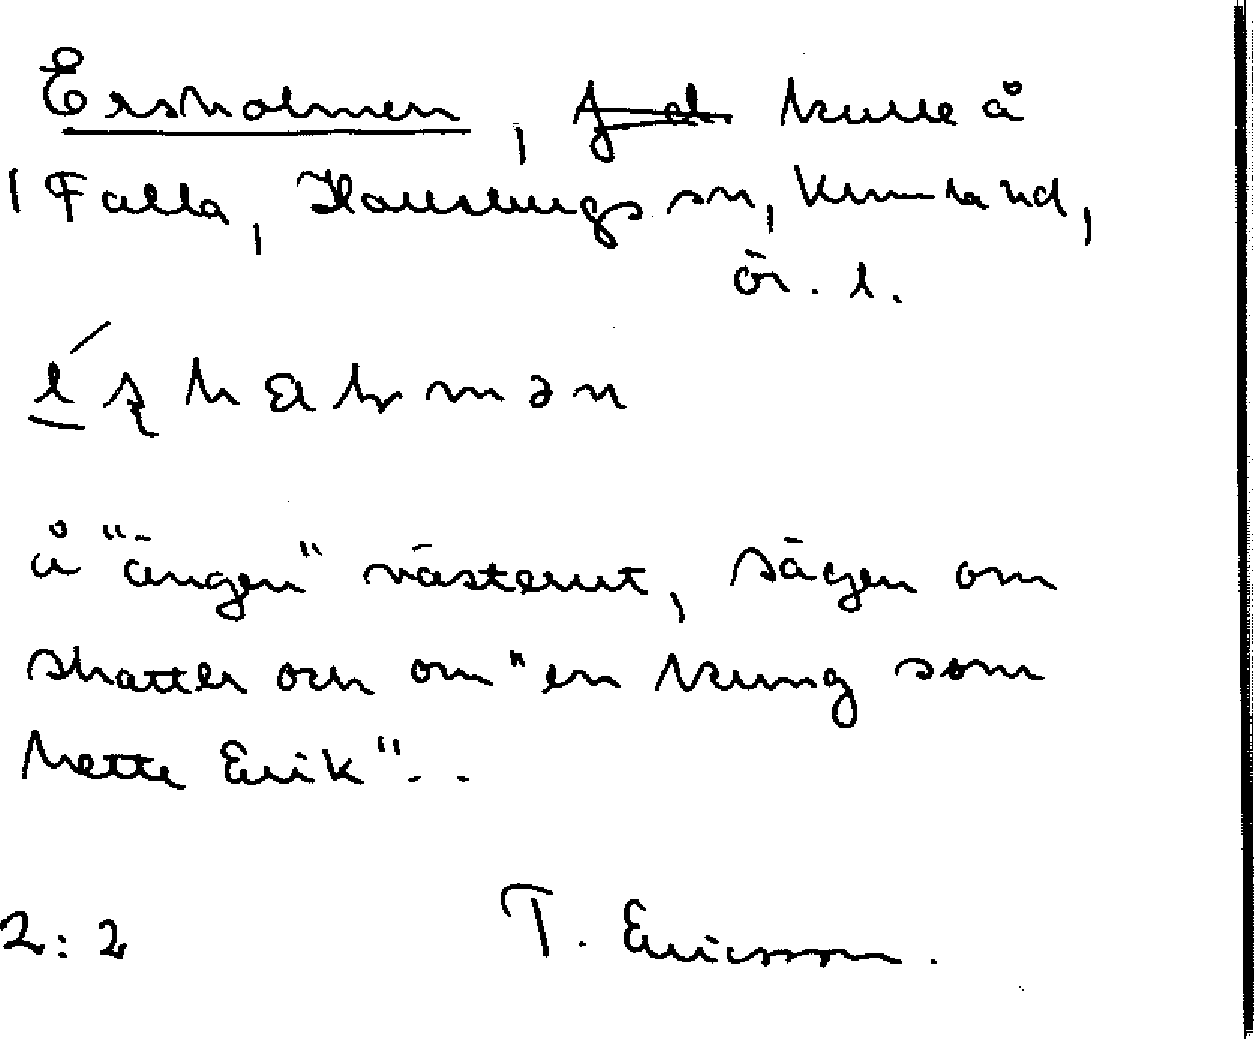 Ersholmen, kulle å
Falla, Hallsbergs sn, Kumla hd,
ör. l.
å "ängen" västerut, sägen om
skatter och om "en kung som
hette Erik"..
2:2 T. Ericsson.